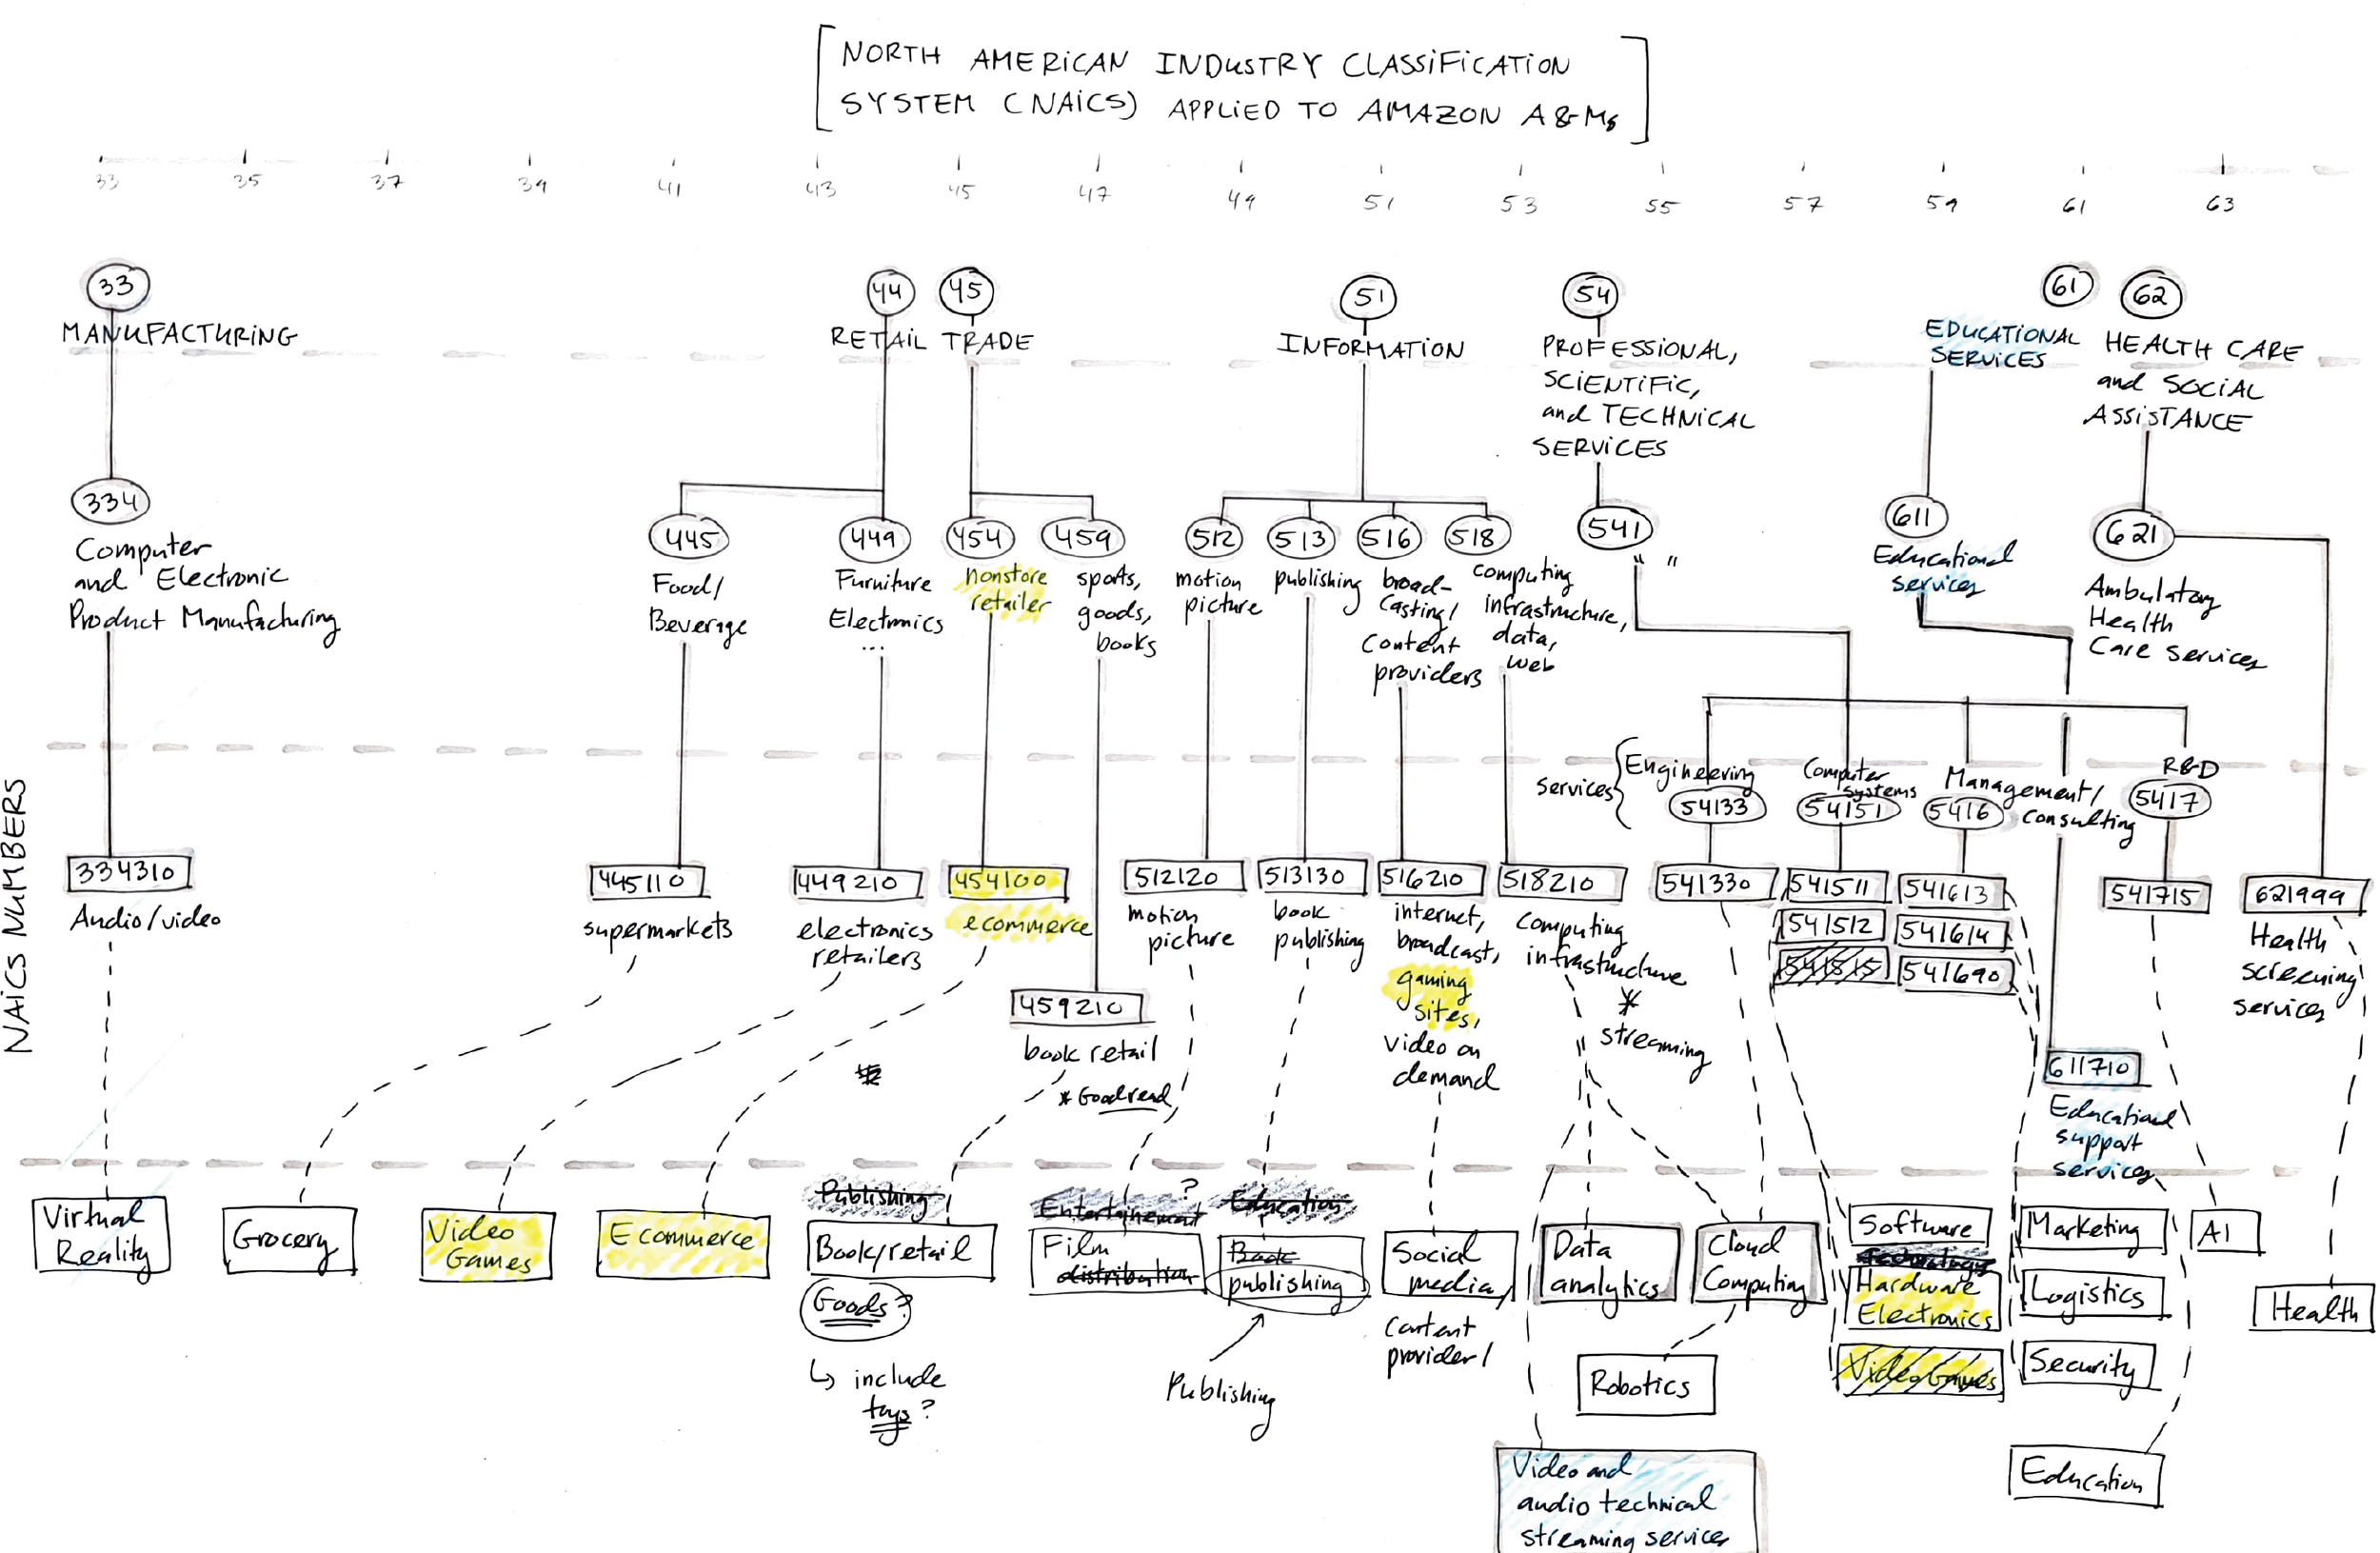 [NORTH AMERICAN INDUSTRY CLASSIFICATION
SYSTEM (NAICS) APPLIED TO AMAZON A&Ms]
33 35 37 39 41 43 45 47 49 51 53 55 57 59 61 63
33
MANUFACTURING
44 45
RETAIL TRADE
51
INFORMATION
54
PROFESSIONAL,
SCIENTIFIC,
and TECHNICAL
SERVICES
61
EDUCATIONAL
SERVICES
62
HEALTH CARE
and SOCIAL
ASSISTANCE
334
Computer
and Electronic
Product Manufacturing
445
Food/
Beverage
449
Furniture
Electronics
...
454
nonstore
retailer
459
sports,
goods,
books
512
motion
picture
513
publishing
516
broad-
casting/
content
providers
518
computing
infrastructure,
data,
web
541
" "
611
Educational
services
621
Ambulatory
Health
Care services
NAICS NUMBERS
Services {
Engineering
54133
Computer
systems
54151
Management/
consulting
5416
R&D
5417
334310
Audio/video
445110
supermarkets
449210
electronics
retailers
454100
ecommerce
459210
book retail
*Goodread
512120
motion
picture
513130
book
publishing
516210
internet,
broadcast,
gaming
sites,
video on
demand
518210
computing
infrastructure
*
streaming
541330
541511
541512
541515
541613
541614
541690
541715
611710
Educational
support
services
621999
Health
screening
services
Virtual
Reality
Grocery
Video
Games
Ecommerce
Publishing
Book/retail
Goods?
↳ include
toys?
Entertainement ?
Film
distribution
Education
Book
publishing
Publishing
Social
media/
Content
provider/
Data
analytics
Cloud
Computing
Robotics
Video and
audio technical
streaming services
Software
Hardware
Electronics
Video Games
Marketing
Logistics
Security
AI
Education
Health